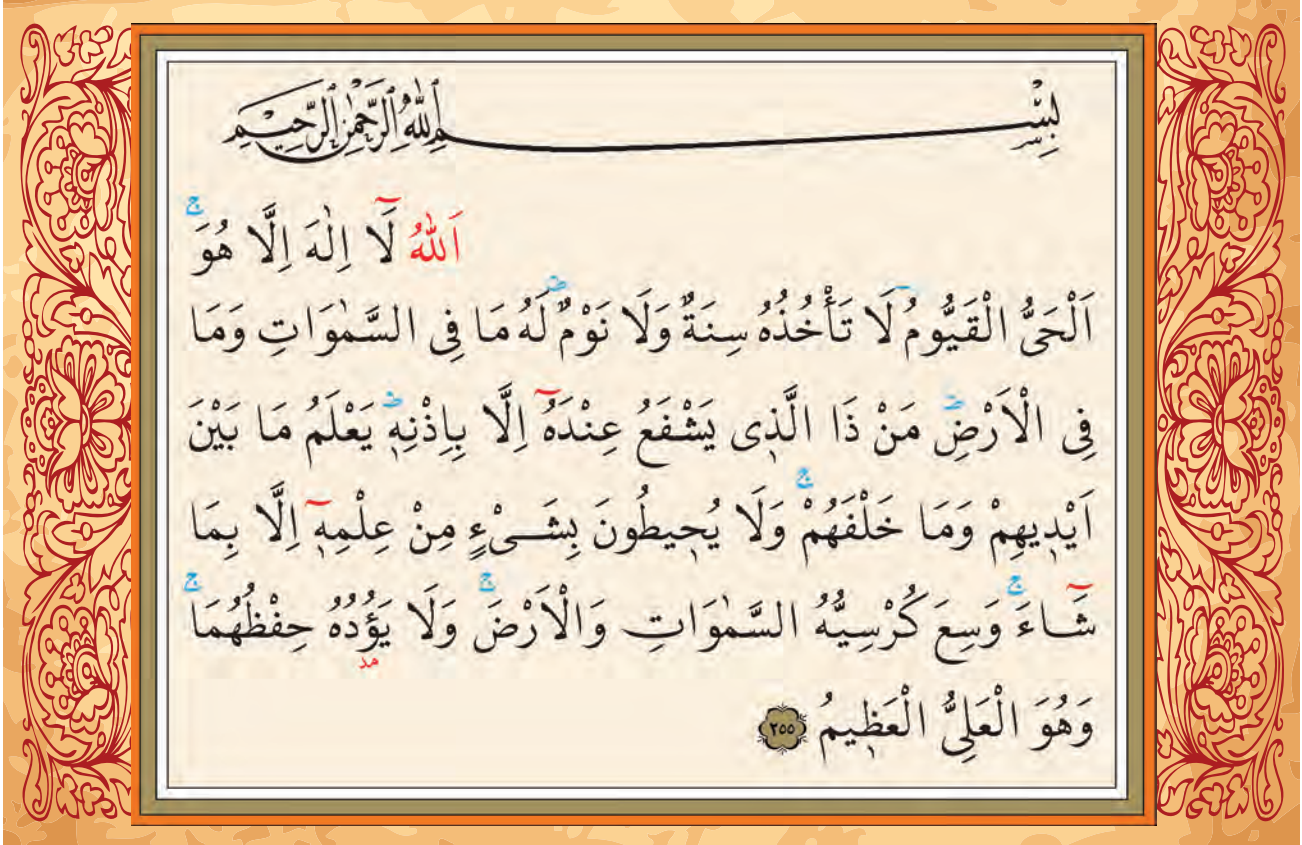 بِسْمِ اللّٰهِ الرَّحْمٰنِ الرَّحِيمِ
اَللّٰهُ لَٓا اِلٰهَ اِلَّا هُوَۚ
اَلْحَىُّ الْقَيُّومُۚ لَا تَأْخُذُهُ سِنَةٌ وَلَا نَوْمٌۜ لَهُ مَا فِى السَّمٰوَاتِ وَمَا
فِى الْاَرْضِۜ مَنْ ذَا الَّذ۪ى يَشْفَعُ عِنْدَهُٓ اِلَّا بِاِذْنِه۪ۜ يَعْلَمُ مَا بَيْنَ
اَيْد۪يهِمْ وَمَا خَلْفَهُمْۚ وَلَا يُح۪يطُونَ بِشَىْءٍ مِنْ عِلْمِه۪ٓ اِلَّا بِمَا
شَٓاءَۚ وَسِعَ كُرْسِيُّهُ السَّمٰوَاتِ وَالْاَرْضَۚ وَلَا يَؤُ۫دُهُ حِفْظُهُمَاۚ
مد
وَهُوَ الْعَلِىُّ الْعَظ۪يمُ ٢٥٥